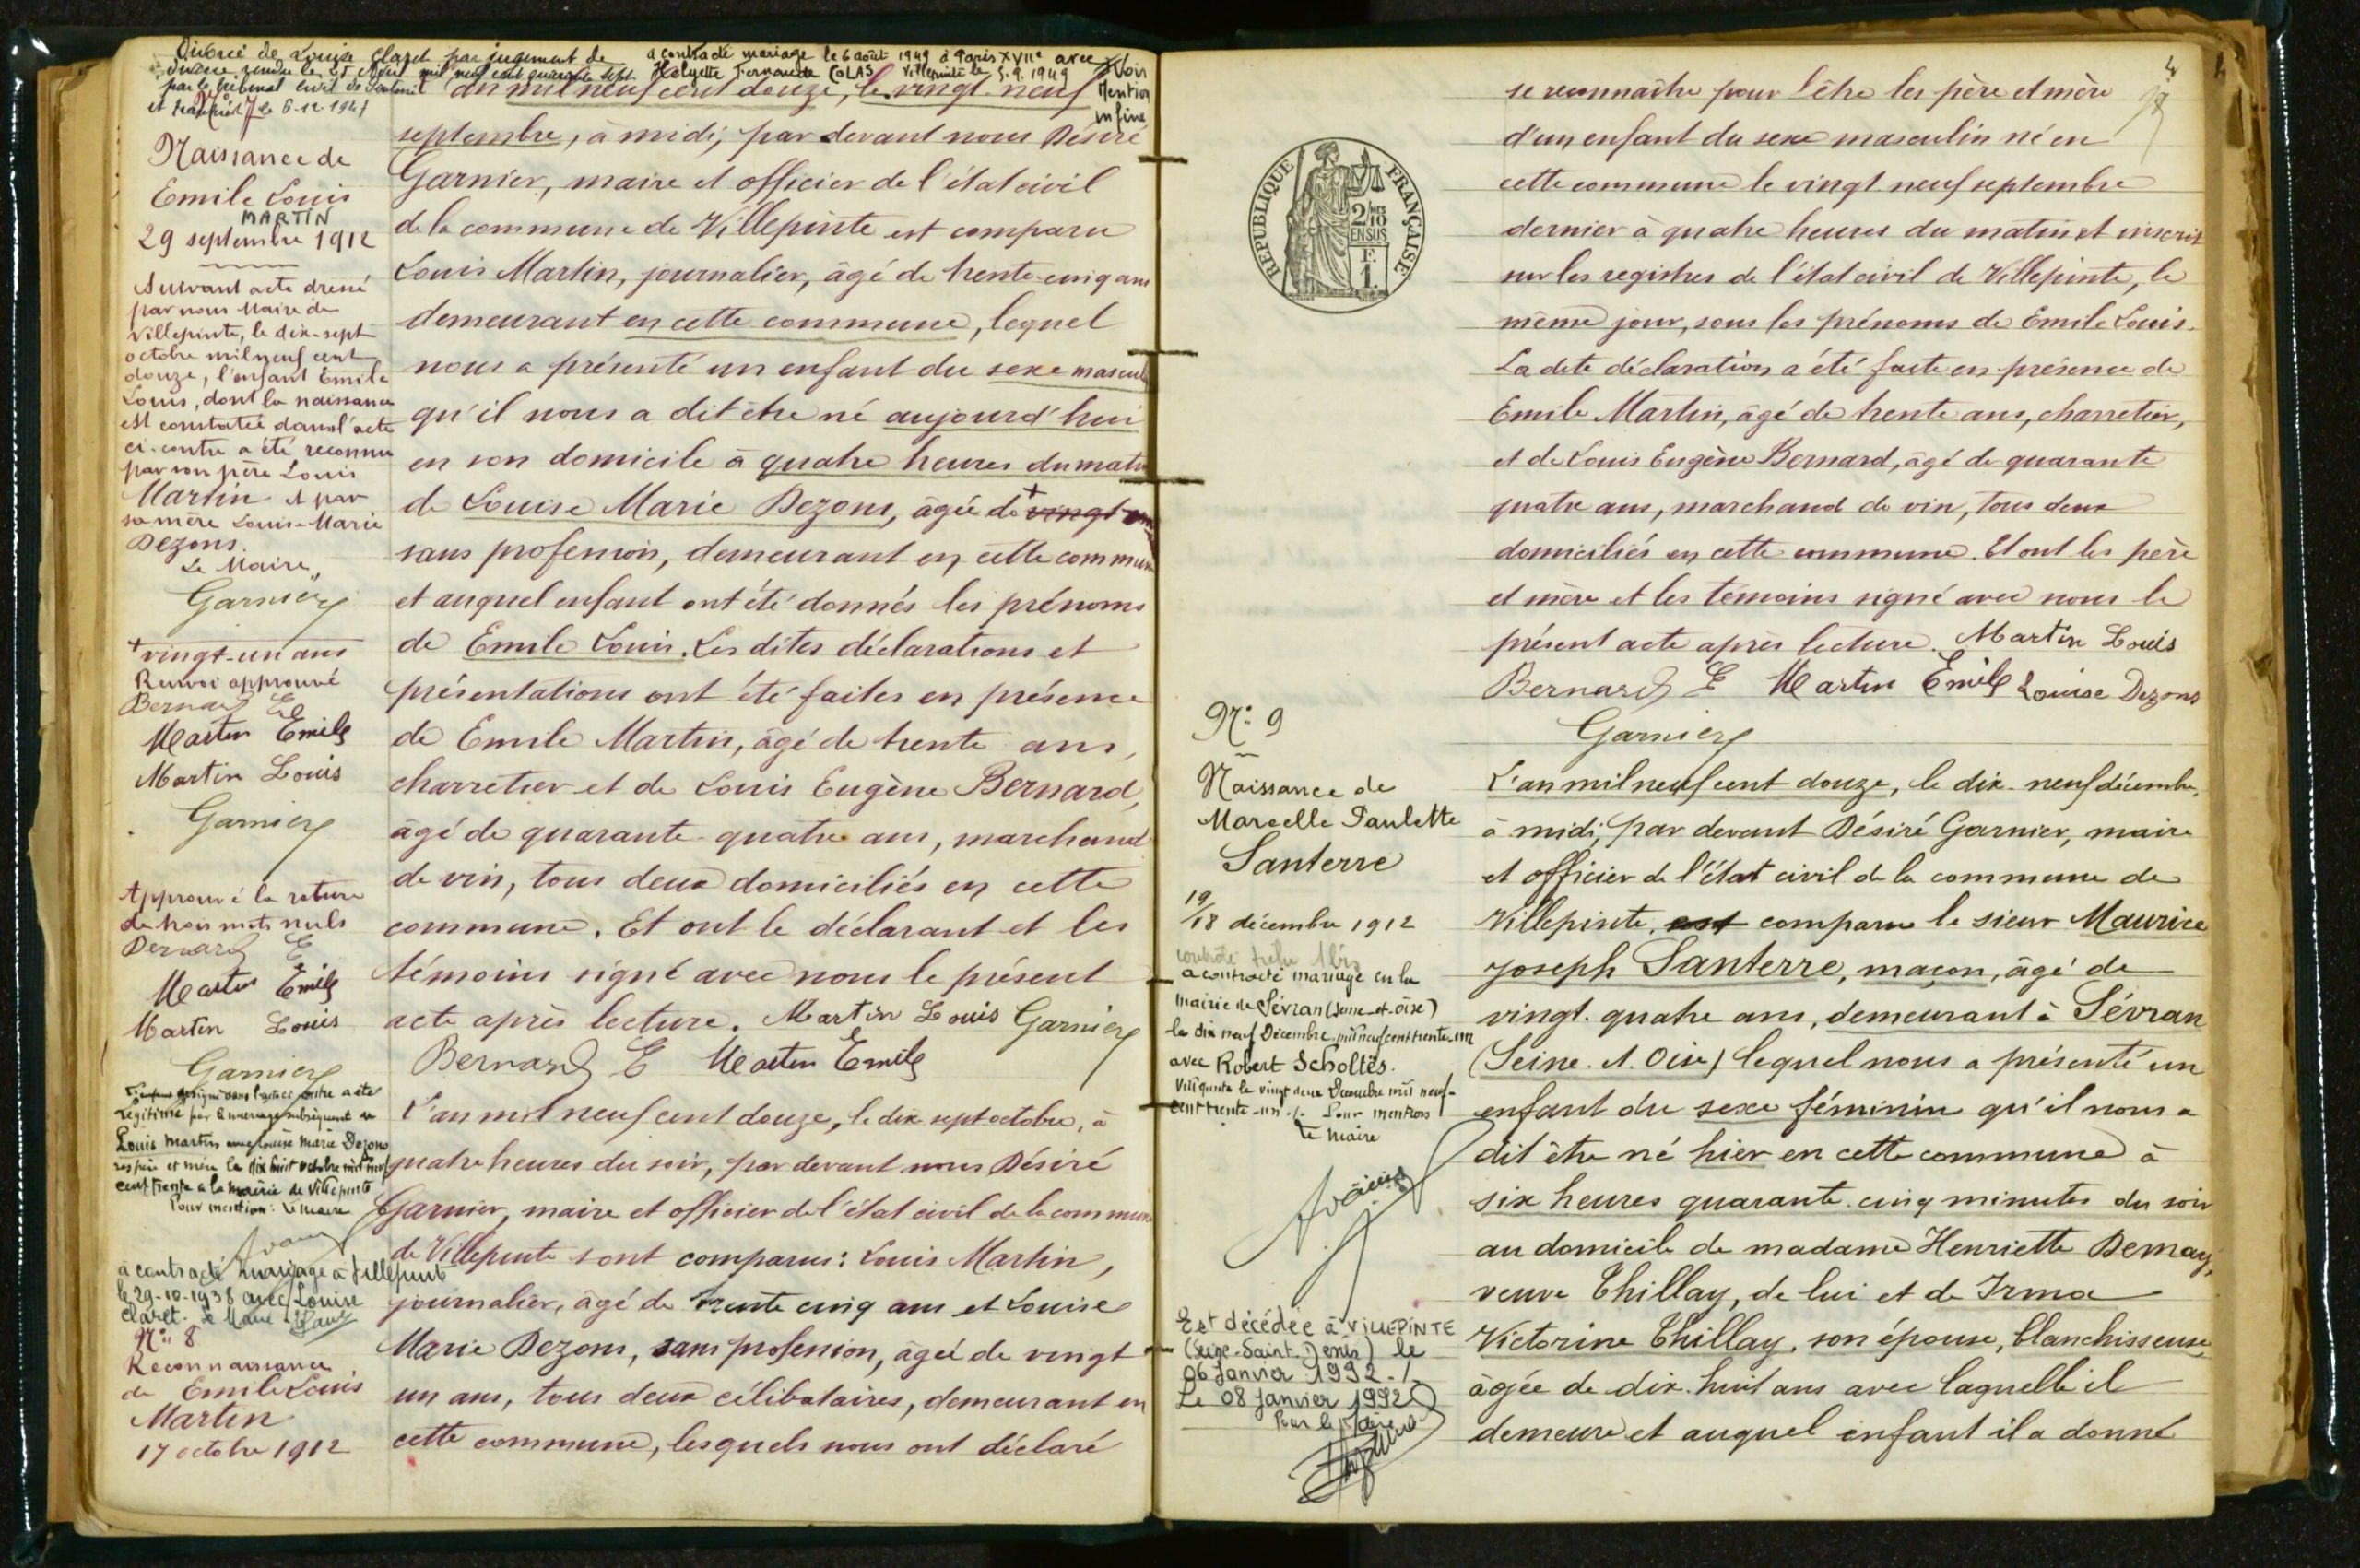 Divorcé de Louise Claret par jugement de
divorce rendu le 25 Avril mil neuf cent quarante sept
par le tribunal civil de
et transcrit le 6-12-1947
a contracté mariage le 6 août 1949 à Paris XVIIe avec
Helyette Fernande COLAS Villepinte le 5.9.1949
Voir
Mention
in fine
Naissance de
Emile Louis
MARTIN
29 septembre 1912
Suivant acte dressé
par nous Maire de
Villepinte, le dix-sept
octobre mil neuf cent
douze, l'enfant Emile
Louis, dont la naissance
est constatée dans l'acte
ci-contre a été reconnu
par son père Louis
Martin et par
sa mère Louis-Marie
Dezons.
Le Maire,
Garnier
+ vingt-un ans
Renvoi approuvé
Bernard E
Martin Emile
Martin Louis
Garnier
Approuvé la rature
de trois mots nuls
Bernard E
Martin Emile
Martin Louis
Garnier
L'enfant désigné dans l'acte ci contre a été
légitimé par le mariage subséquent de
Louis Martin avec Louise Marie Dezons
ses père et mère le dix huit octobre mil neuf
cent trente a la mairie de Villepinte
Pour mention: Le Maire
à contracté mariage à Villepinte
le 29-10-1938 avec Louise
Claret. Le Maire
an mil neuf cent douze, le vingt-neuf
septembre, à midi, par devant nous Désiré
Garnier, maire et officier de l'état civil
de la commune de Villepinte est comparu
Louis Martin, journalier, âgé de trente-cinq ans
demeurant en cette commune, lequel
nous a présenté un enfant du sexe mascul
qu'il nous a dit être né aujourd'hui
en son domicile à quatre heures du matin
de Louise Marie Dezons, âgée de + vingt
sans profession, demeurant en cette commune
et auquel enfant ont été donnés les prénoms
de Emile Louis. Les dites déclarations et
présentations ont été faites en présence
de Emile Martin, âgé de trente ans,
charretier et de Louis Eugène Bernard,
âgé de quarante-quatre ans, marchand
de vin, tous deux domiciliés en cette
commune. Et ont le déclarant et les
témoins signé avec nous le présent
acte après lecture. Martin Louis Garnier
Bernard E Martin Emile
No 8
Reconnaissance
de Emile Louis
Martin
17 octobre 1912
L'an mil neuf cent douze, le dix sept octobre, à
quatre heures du soir, par devant nous Désiré
Garnier, maire et officier de l'état civil de la commune
de Villepinte sont comparus: Louis Martin,
journalier, âgé de trente cinq ans et Louise
Marie Dezons, sans profession, âgée de vingt
un ans, tous deux célibataires, demeurant en
cette commune, lesquels nous ont déclaré
4
se reconnaître pour l'être les père et mère
d'un enfant du sexe masculin né en
cette commune le vingt neuf septembre
dernier à quatre heures du matin et inscrit
sur les registres de l'état civil de Villepinte, le
même jour, sous les prénoms de Emile Louis.
La dite déclaration a été faite en présence de
Emile Martin, âgé de trente ans, charretier,
et de Louis Eugène Bernard, âgé de quarante
quatre ans, marchand de vin, tous deux
domiciliés en cette commune. Et ont les père
et mère et les témoins signé avec nous le
présent acte après lecture. Martin Louis
Bernard E Martin Emile Louise Dezons
Garnier
RÉPUBLIQUE FRANÇAISE
2/10 MES
EN SUS
F.
1.
No 9
Naissance de
Marcelle Paulette
Santerre
19/18 décembre 1912
a contracté mariage en la
mairie de Sévran (Seine-et-Oise)
le dix neuf Décembre mil neuf cent trente-un
avec Robert Scholtès.
Villepinte le vingt deux Décembre mil neuf-
cent trente-un ./. Pour mention
Le Maire
Est décédée à VILLEPINTE
(Seine-Saint-Denis) le
06 Janvier 1992-/-
Le 08 Janvier 1992
Pour le Maire
L'an mil neuf cent douze, le dix-neuf décembre,
à midi, par devant Désiré Garnier, maire
et officier de l'état civil de la commune de
Villepinte, est comparu le sieur Maurice
Joseph Santerre, maçon, âgé de
vingt-quatre ans, demeurant à Sévran
(Seine-et-Oise) lequel nous a présenté un
enfant du sexe féminin qu'il nous a
dit être né hier en cette commune à
six heures quarante-cinq minutes du soir
au domicile de madame Henriette Demay,
veuve Thillay, de lui et de Irma
Victorine Thillay, son épouse, blanchisseuse,
âgée de dix-huit ans avec laquelle il
demeure et auquel enfant il a donné